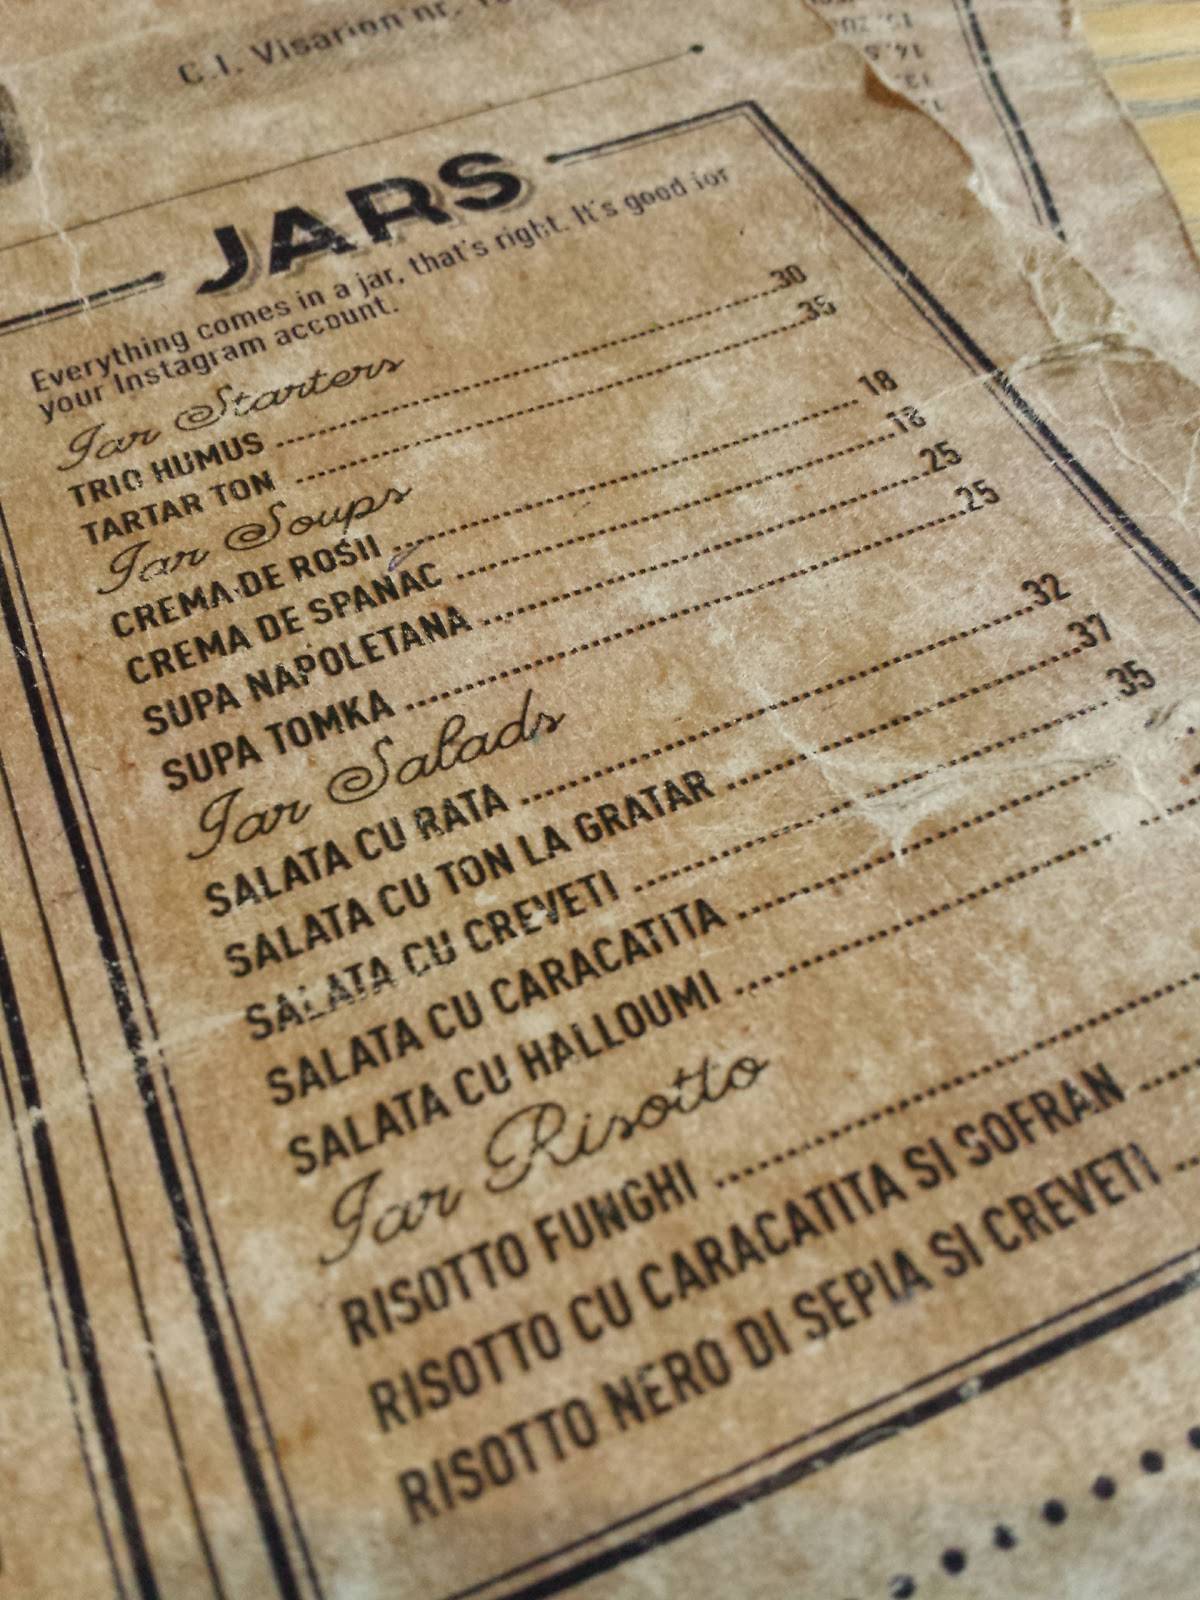 C.I. Visarion nr.
JARS
Everything comes in a jar, that's right. It's good for
your Instagram account.
Jar Starters
TRIO HUMUS 30
TARTAR TON 35
Jar Soups
CREMA DE ROSII 18
CREMA DE SPANAC 18
SUPA NAPOLETANA 25
SUPA TOMKA 25
Jar Salads
SALATA CU RATA 32
SALATA CU TON LA GRATAR 37
SALATA CU CREVETI 35
SALATA CU CARACATITA
SALATA CU HALLOUMI
Jar Risotto
RISOTTO FUNGHI
RISOTTO CU CARACATITA SI SOFRAN
RISOTTO NERO DI SEPIA SI CREVETI